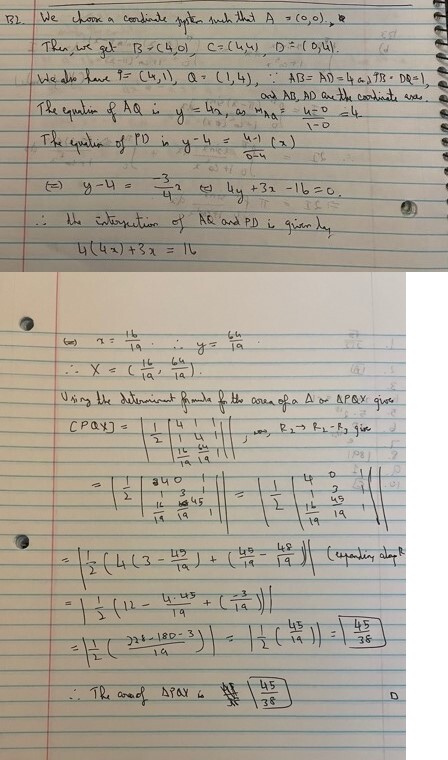 B2. We choose a coordinate system such that A = (0,0).
Then, we get B = (4,0), C = (4,4), D = (0,4).
We also have P = (4,1), Q = (1,4), ∵ AB = AD = 4 and PB = DQ = 1,
and AB, AD are the coordinate axes.
The equation of AQ is y = 4x, as m_AQ = (4-0)/(1-0) = 4
The equation of PD is y-4 = (4-1)/(0-4) (x)
⟺ y-4 = -3/4 x ⟺ 4y + 3x - 16 = 0.
∴ the intersection of AQ and PD is given by
4(4x) + 3x = 16
⟺ x = 16/19 ∴ y = 64/19.
∴ X = (16/19, 64/19).
Using the determinant formula for the area of a Δ on ΔPQX gives
[PQX] = | 1/2 | 4 1 1 |
| 1 4 1 |
| 16/19 64/19 1 | |, R2 → R2 - R3 give
= | 1/2 | 4 0 1 |
| 1 3 1 |
| 16/19 45/19 1 | | = | 1/2 | 4 0 1 |
| 1 3 1 |
| 16/19 45/19 1 | |
= | 1/2 ( 4 (3 - 45/19) + (45/19 - 48/19) | (expanding along R
= | 1/2 (12 - 4·45/19 + (-3/19)) |
= | 1/2 ( (228-180-3)/19 ) | = | 1/2 (45/19) | = 45/38
∴ The area of ΔPQX is 45/38